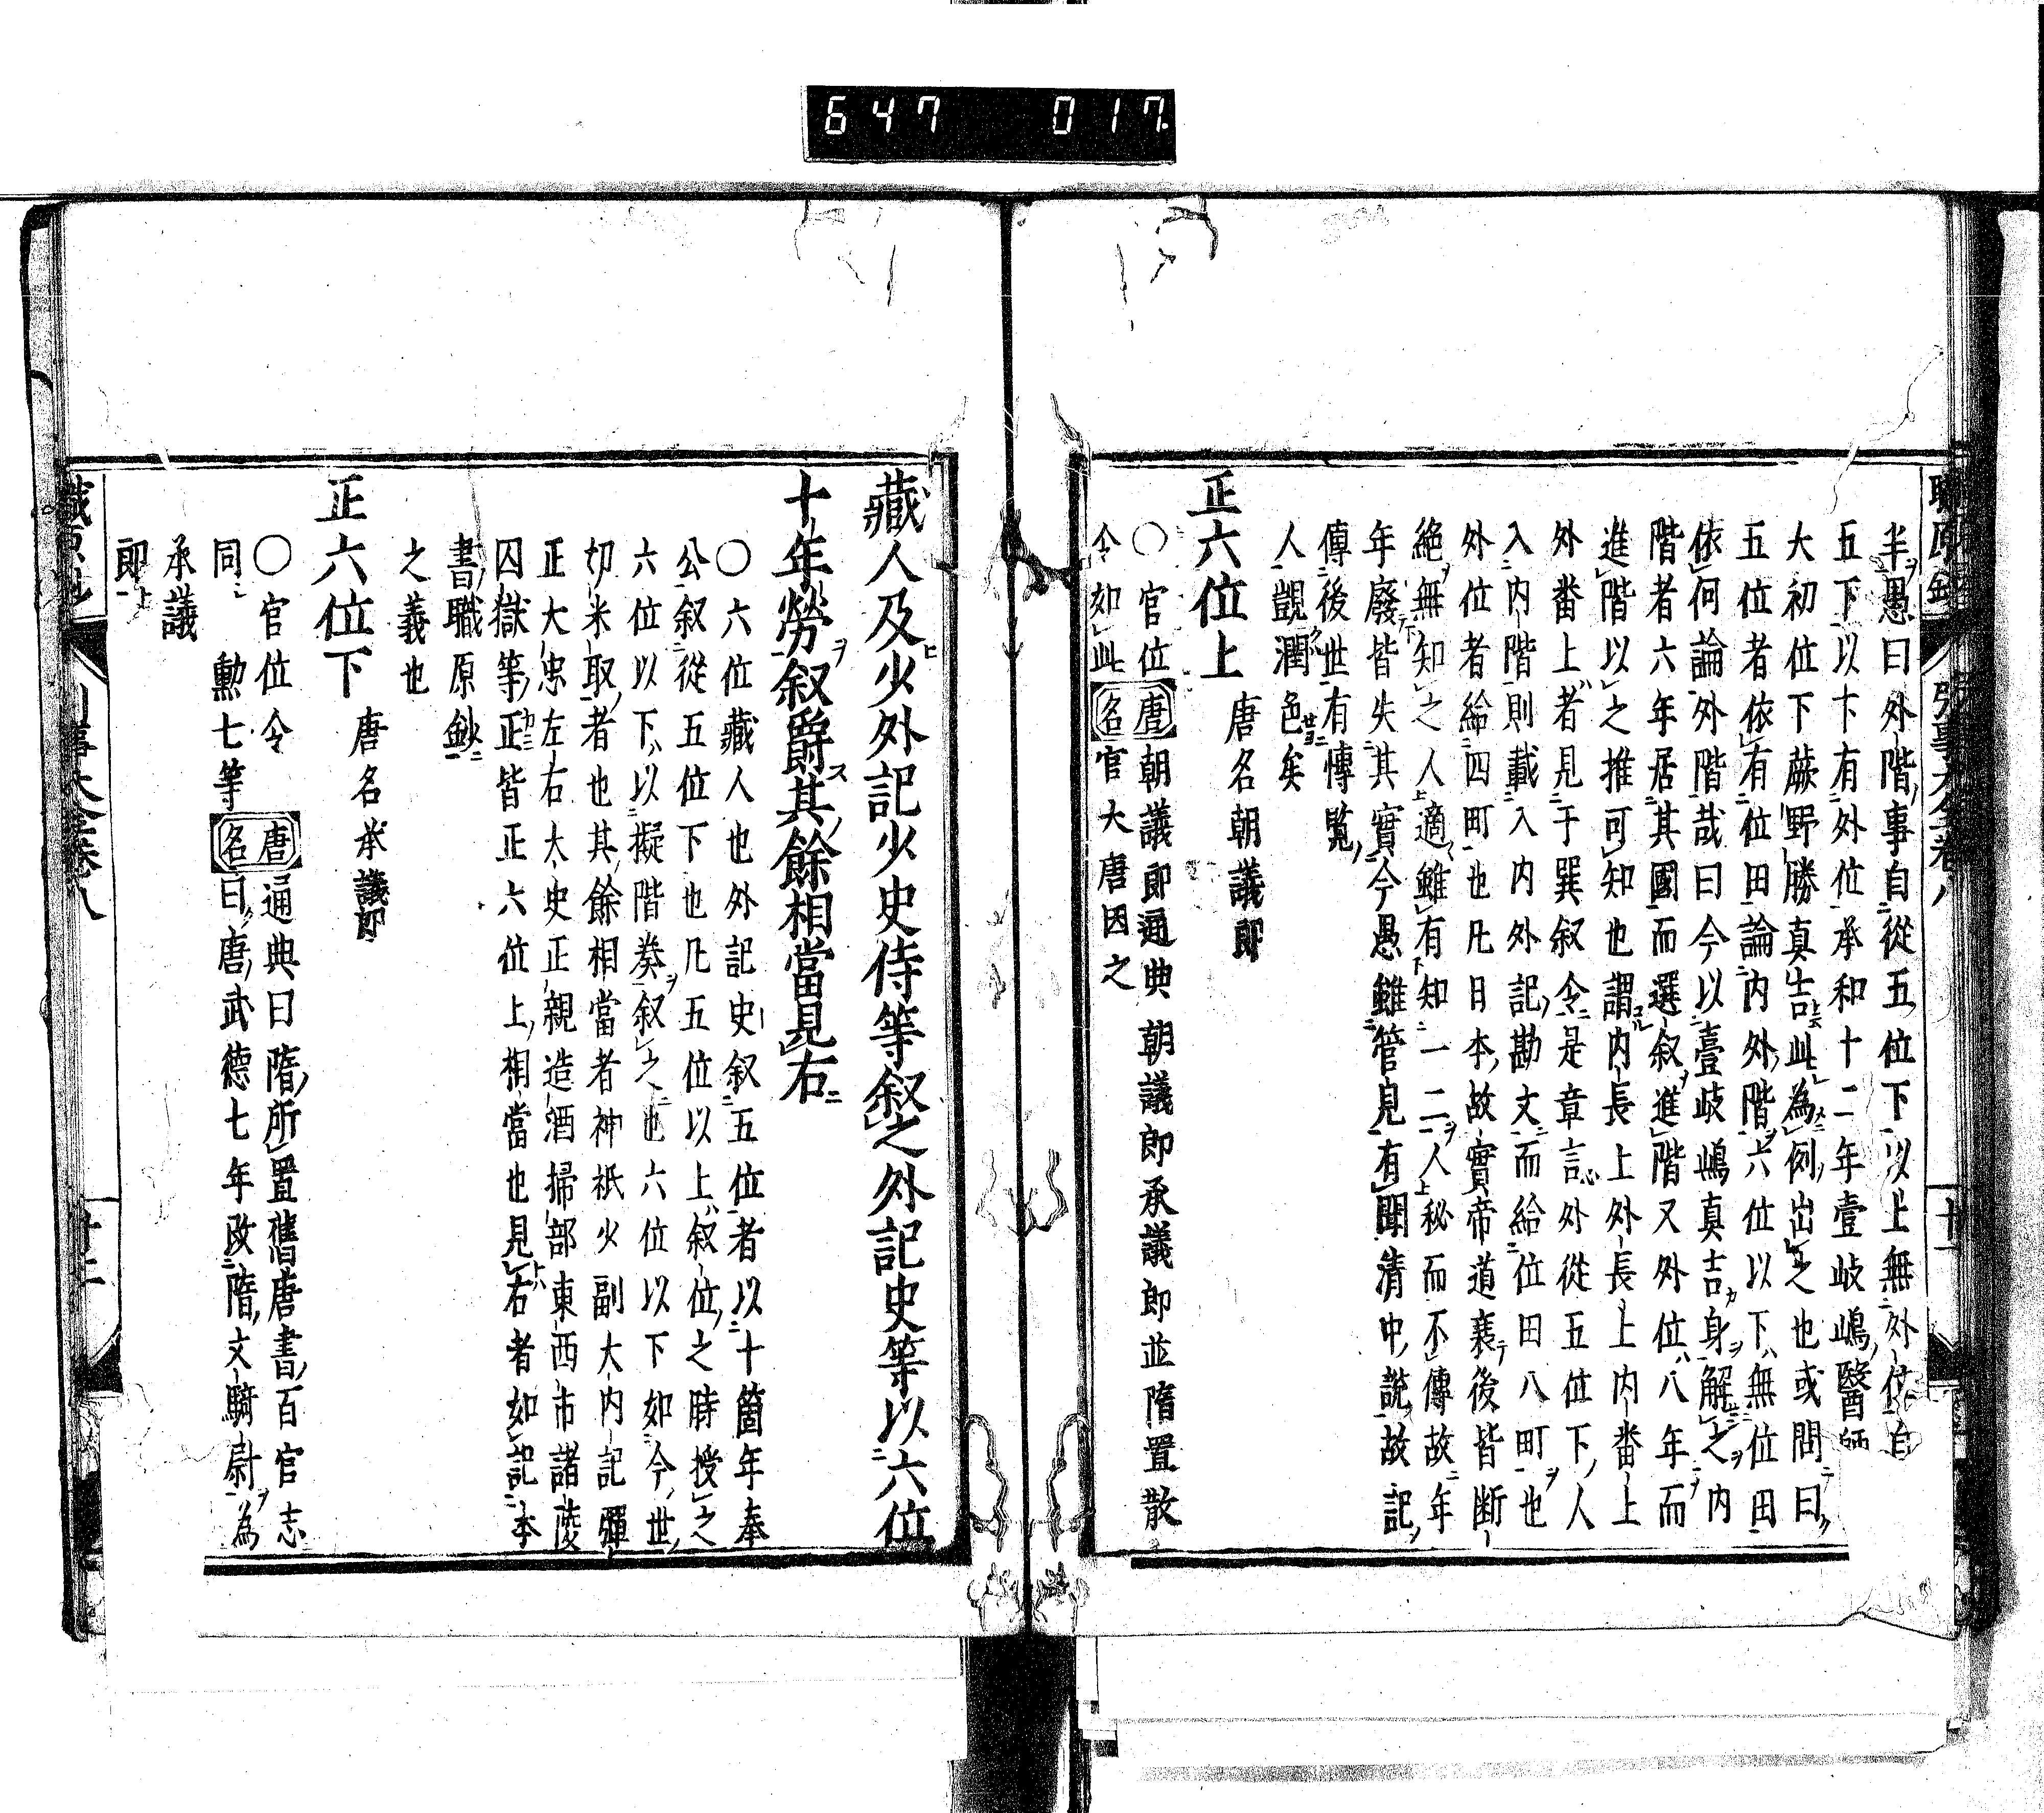 647 017.
職原鈔 引事大全卷八 十一
半愚曰外階事自從五位下以上無外位自
五下以下有外位承和十二年壹岐嶋醫師
大初位下蕨野勝真吉此為例出之也或問曰
五位者依有位田論內外階六位以下無位田
依何論外階哉曰今以壹岐嶋真吉身解之內
階者六年居其國而選叙進階又外位八年而
進階以之推可知也謂內長上外長上內番上
外番上者見于巽叙令是章言外從五位下人
入內階則載入內外記勘文而給位田八町也
外位者給四町也凡日本故實帝道衰後皆断
絶無知之人適雖有知一二人秘而不傳故年
年廢皆失其實今愚雖管見有聞清中說故記
傳後世有慱覧
人覬潤色矣
正六位上 唐名朝議郎
〇官位唐名朝議郎通典朝議郎承議郎並隋置散
令如此官大唐因之
藏人及少外記少史侍等叙之外記史等以六位
十年勞叙爵其餘相當見右
〇六位藏人也外記史叙五位者以十箇年奉
公叙從五位下也凡五位以上叙位之時授之
六位以下以擬階奏叙之也六位以下如今世
切米取者也其餘相當者神祇少副大內記彈
正大忠左右大史正親造酒掃部東西市諸陵
囚獄等正皆正六位上相當也見右者如記本
書職原鈔
之義也
正六位下 唐名承議郎
〇官位令唐名通典曰隋所置舊唐書百官志
同 勳七等曰唐武德七年改隋文騎尉為
承議
郎